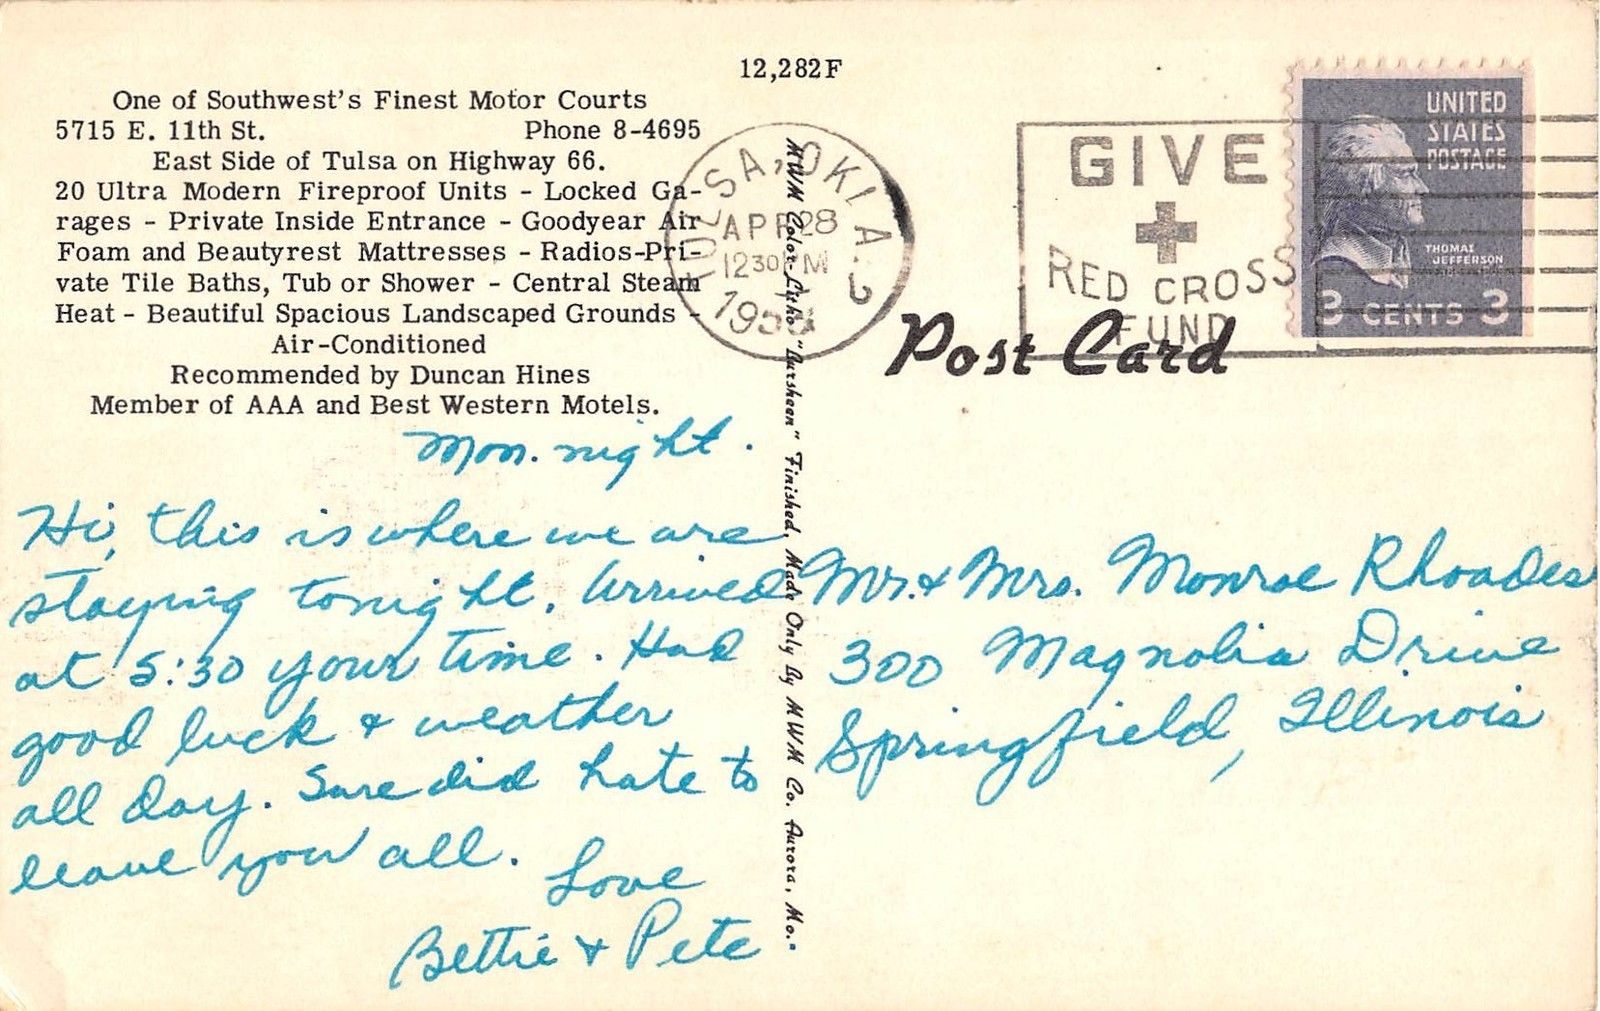 12,282F
One of Southwest's Finest Motor Courts
5715 E. 11th St. Phone 8-4695
East Side of Tulsa on Highway 66.
20 Ultra Modern Fireproof Units - Locked Ga-
rages - Private Inside Entrance - Goodyear Air
Foam and Beautyrest Mattresses - Radios-Pri-
vate Tile Baths, Tub or Shower - Central Steam
Heat - Beautiful Spacious Landscaped Grounds -
Air-Conditioned
Recommended by Duncan Hines
Member of AAA and Best Western Motels.
Mon. night.
Hi, this is where we are
staying tonight. Arrived
at 5:30 your time. Had
good luck & weather
all day. Sure did hate to
leave you all.
Love
Bettie & Pete
MWM Color-Litho "Aursheen" Finished, Made Only By MWM Co. Aurora, Mo.
TULSA, OKLA.
APR 28
1230 PM
GIVE
RED CROSS
FUND
UNITED
STATES
POSTAGE
THOMAS
JEFFERSON
3 CENTS 3
Post Card
Mr. & Mrs. Monroe Rhoades
300 Magnolia Drive
Springfield, Illinois